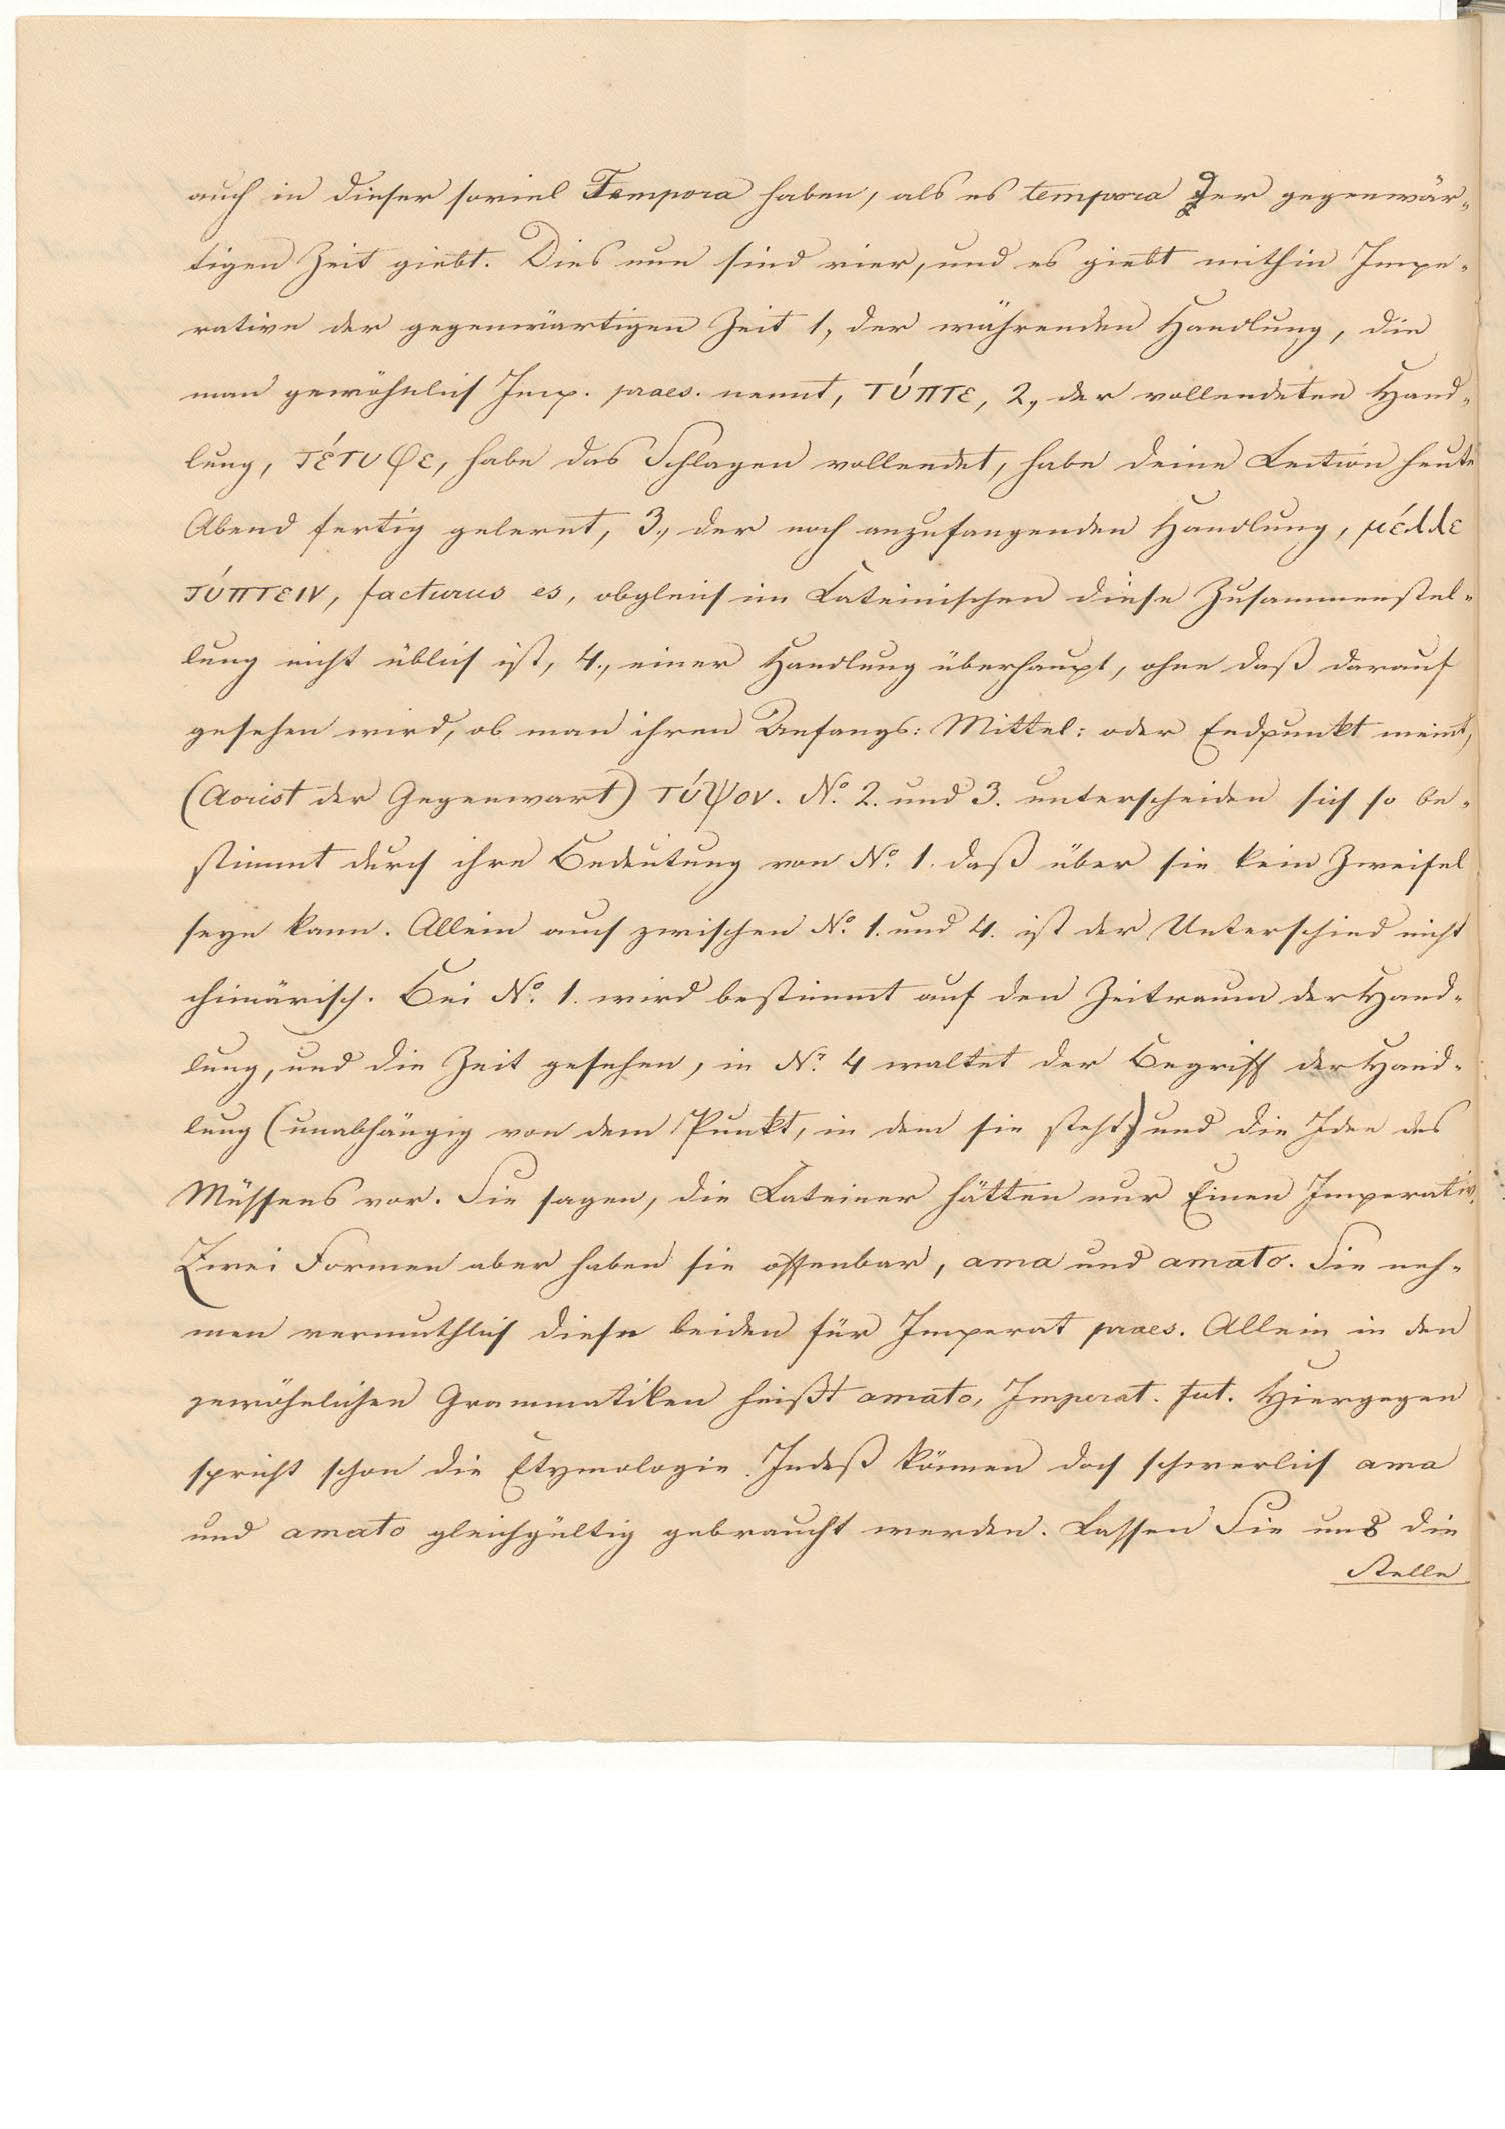 auch in dieser soviel Tempora haben, als es tempora der gegenwär-
tigen Zeit giebt. Dies nun sind vier, und es giebt mithin Impe-
rative der gegenwärtigen Zeit 1., der währenden Handlung, die
man gewöhnlich Imp. praes. nennt, τύπτε, 2., der vollendeten Hand-
lung, τέτυφε, habe das Schlagen vollendet, habe deine Lection heute
Abend fertig gelernt, 3., der noch anzufangenden Handlung, μέλλε
τύπτειν, facturus es, obgleich im Lateinischen diese Zusammenstel-
lung nicht üblich ist, 4., einer Handlung überhaupt, ohne daß darauf
gesehen wird, ob man ihren Anfangs: Mittel: oder Endpunkt meint,
(Aorist der Gegenwart) τύψον. No. 2. und 3. unterscheiden sich so be-
stimmt durch ihre Bedeutung von No. 1. daß über sie kein Zweifel
seyn kann. Allein auch zwischen No. 1. und 4. ist der Unterschied nicht
chimärisch. Bei No. 1. wird bestimmt auf den Zeitraum der Hand-
lung, und die Zeit gesehen, in No. 4 waltet der Begriff der Hand-
lung (unabhängig von dem Punkt, in dem sie steht) und die Idee des
Müssens vor. Sie sagen, die Lateiner hätten nur Einen Imperativ.
Zwei Formen aber haben sie offenbar, ama und amato. Sie neh-
men vermuthlich diese beiden für Imperat praes. Allein in den
gewöhnlichen Grammatiken heißt amato, Imperat. fut. Hiergegen
spricht schon die Etymologie. Indeß können doch schwerlich ama
und amato gleichgültig gebraucht werden. Lassen Sie uns die
Stelle